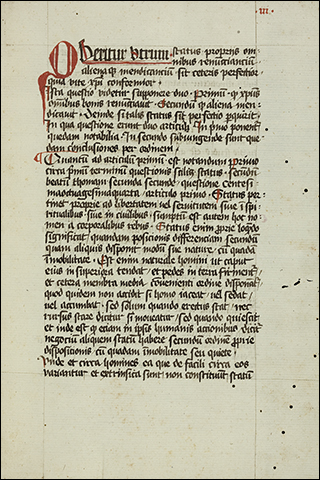 .III.
Queritur Utrum status proprijs om
nibus renuncianciū
aliena q̄ mendicanciū sit ceteris perfectior
qua vite xp̄i conformior
Ista questio videtur supponere duo. Primū q̄ xp̄us
omnibus bonis renuciavit. Secundū q̄ aliena men-
dicavit. Deinde si talis status sit perfectior querit.
In qua questione erunt duo articuli. In primo ponent̄
quedam notabilia. In secundo subiungende sunt que
dam conclusiones per ordinem.
Quantū ad articulū primū est notandum primo
circa primū terminū questionis scilicet status. secundū
beatū thomam secunda secunde questione centesi
maoctuagesimaquarta articulo primo. Status per
tinet proprie ad libertatem vel servitutem sive i spi
ritualibus sive in civilibus. sumptū est autem hoc no-
men a corporalibus rebus. Status enim proprie loquendo
significat quandam posicionis differenciam secundū
quam aliquis disponitur modū sue nature cū quadā
immobilitate. Est enim naturale homini ut caput
eius in superiora tendat et pedes in terra firment̄
et cetera membra media convenienti ordine disponant̄
quod quidem non accidit si homo iaceat vel sedeat
vel accumbat sed solum quando erectus stat nec
rursus stare dicitur si moveatur sed quando quiescit
et inde est q̄ eciam in ipsis humanis actionibus dicit̄
negociū aliquem statū habere secundū ordinē proprie
dispositionis cū quadam immobilitate seu quiete.
Unde et circa homines ea que de facili circa eos
variantur et extrinseca sunt non constituūt statū